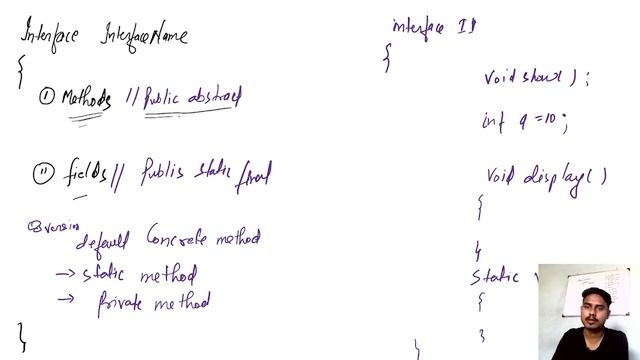 Interface InterfaceName
{
① Methods // Public abstract
② fields // Publis static final
③ version
default Concrete method
→ static method
→ Private method
}
interface I1
{
void show();
int a = 10;
void display()
{
}
static
{
}
}